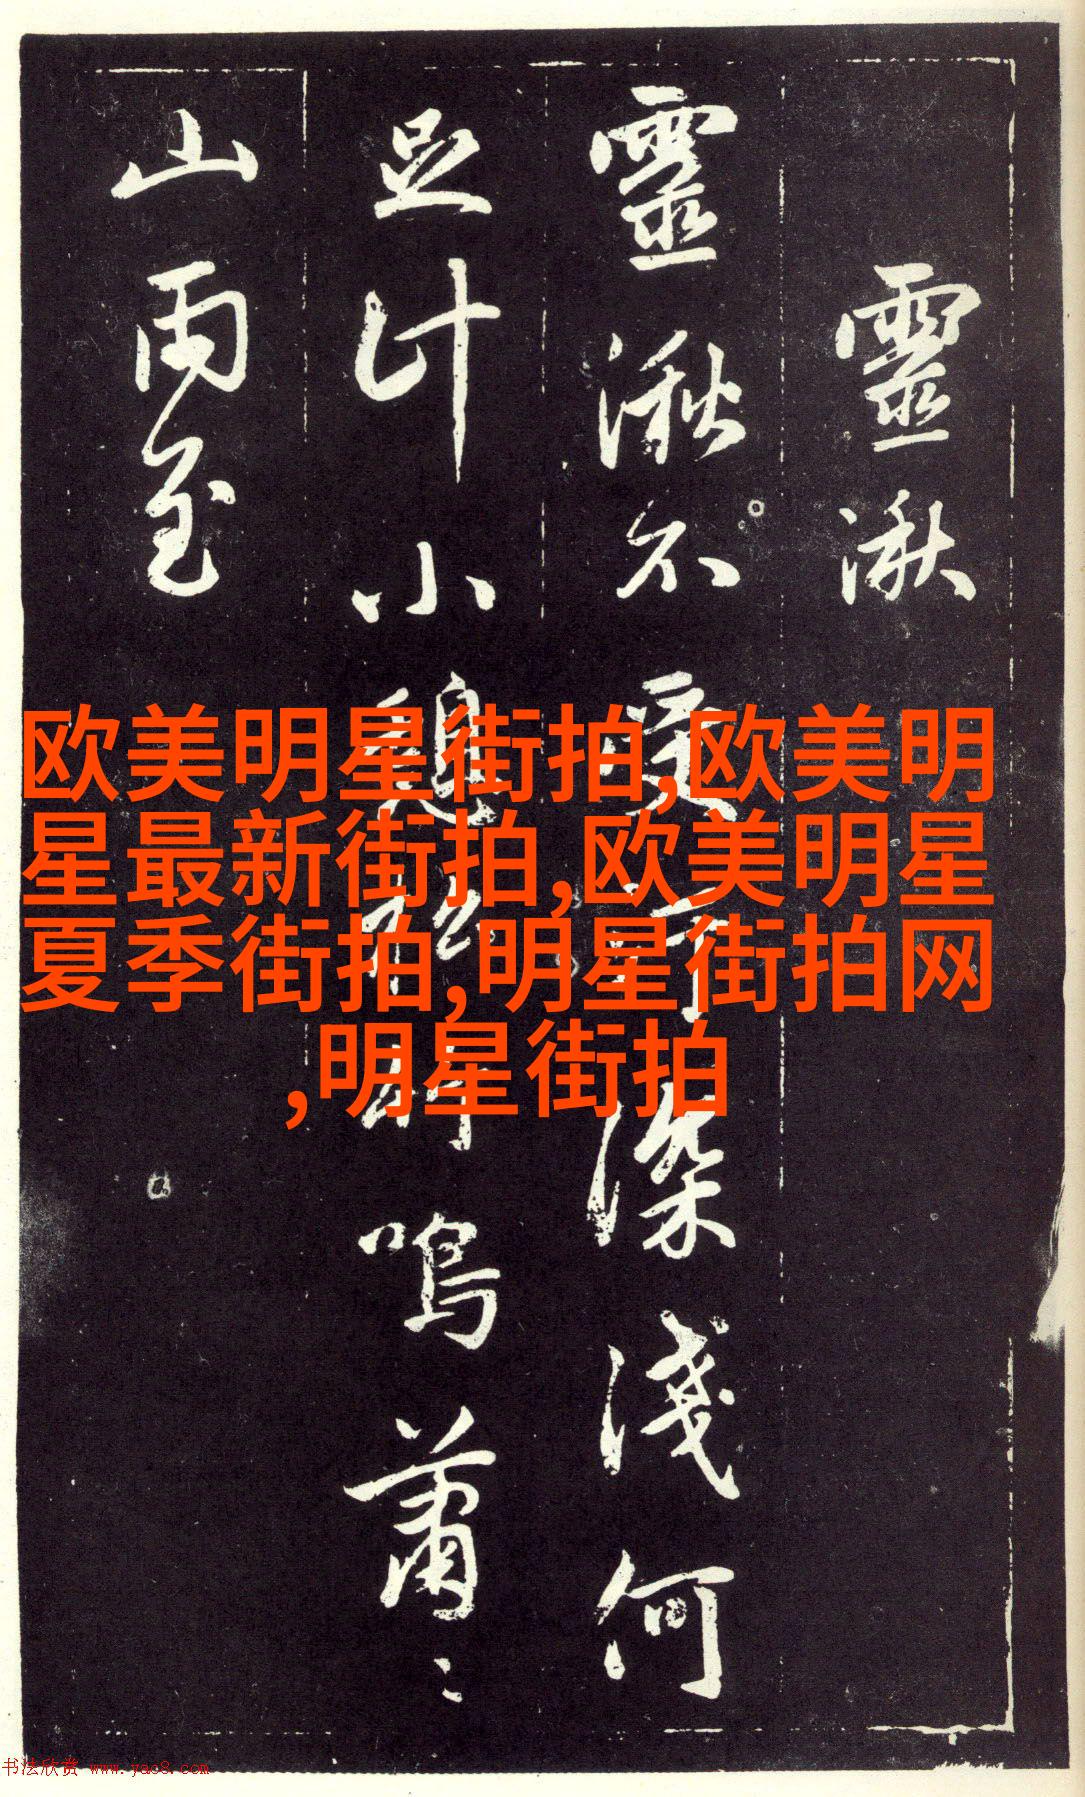 靈湫
靈湫不受深淺何
足計小憩鳴蕭〻
山雨至
欧美明星街拍,欧美明
星最新街拍,欧美明星
夏季街拍,明星街拍网
,明星街拍
书法欣赏 www.yac8.com